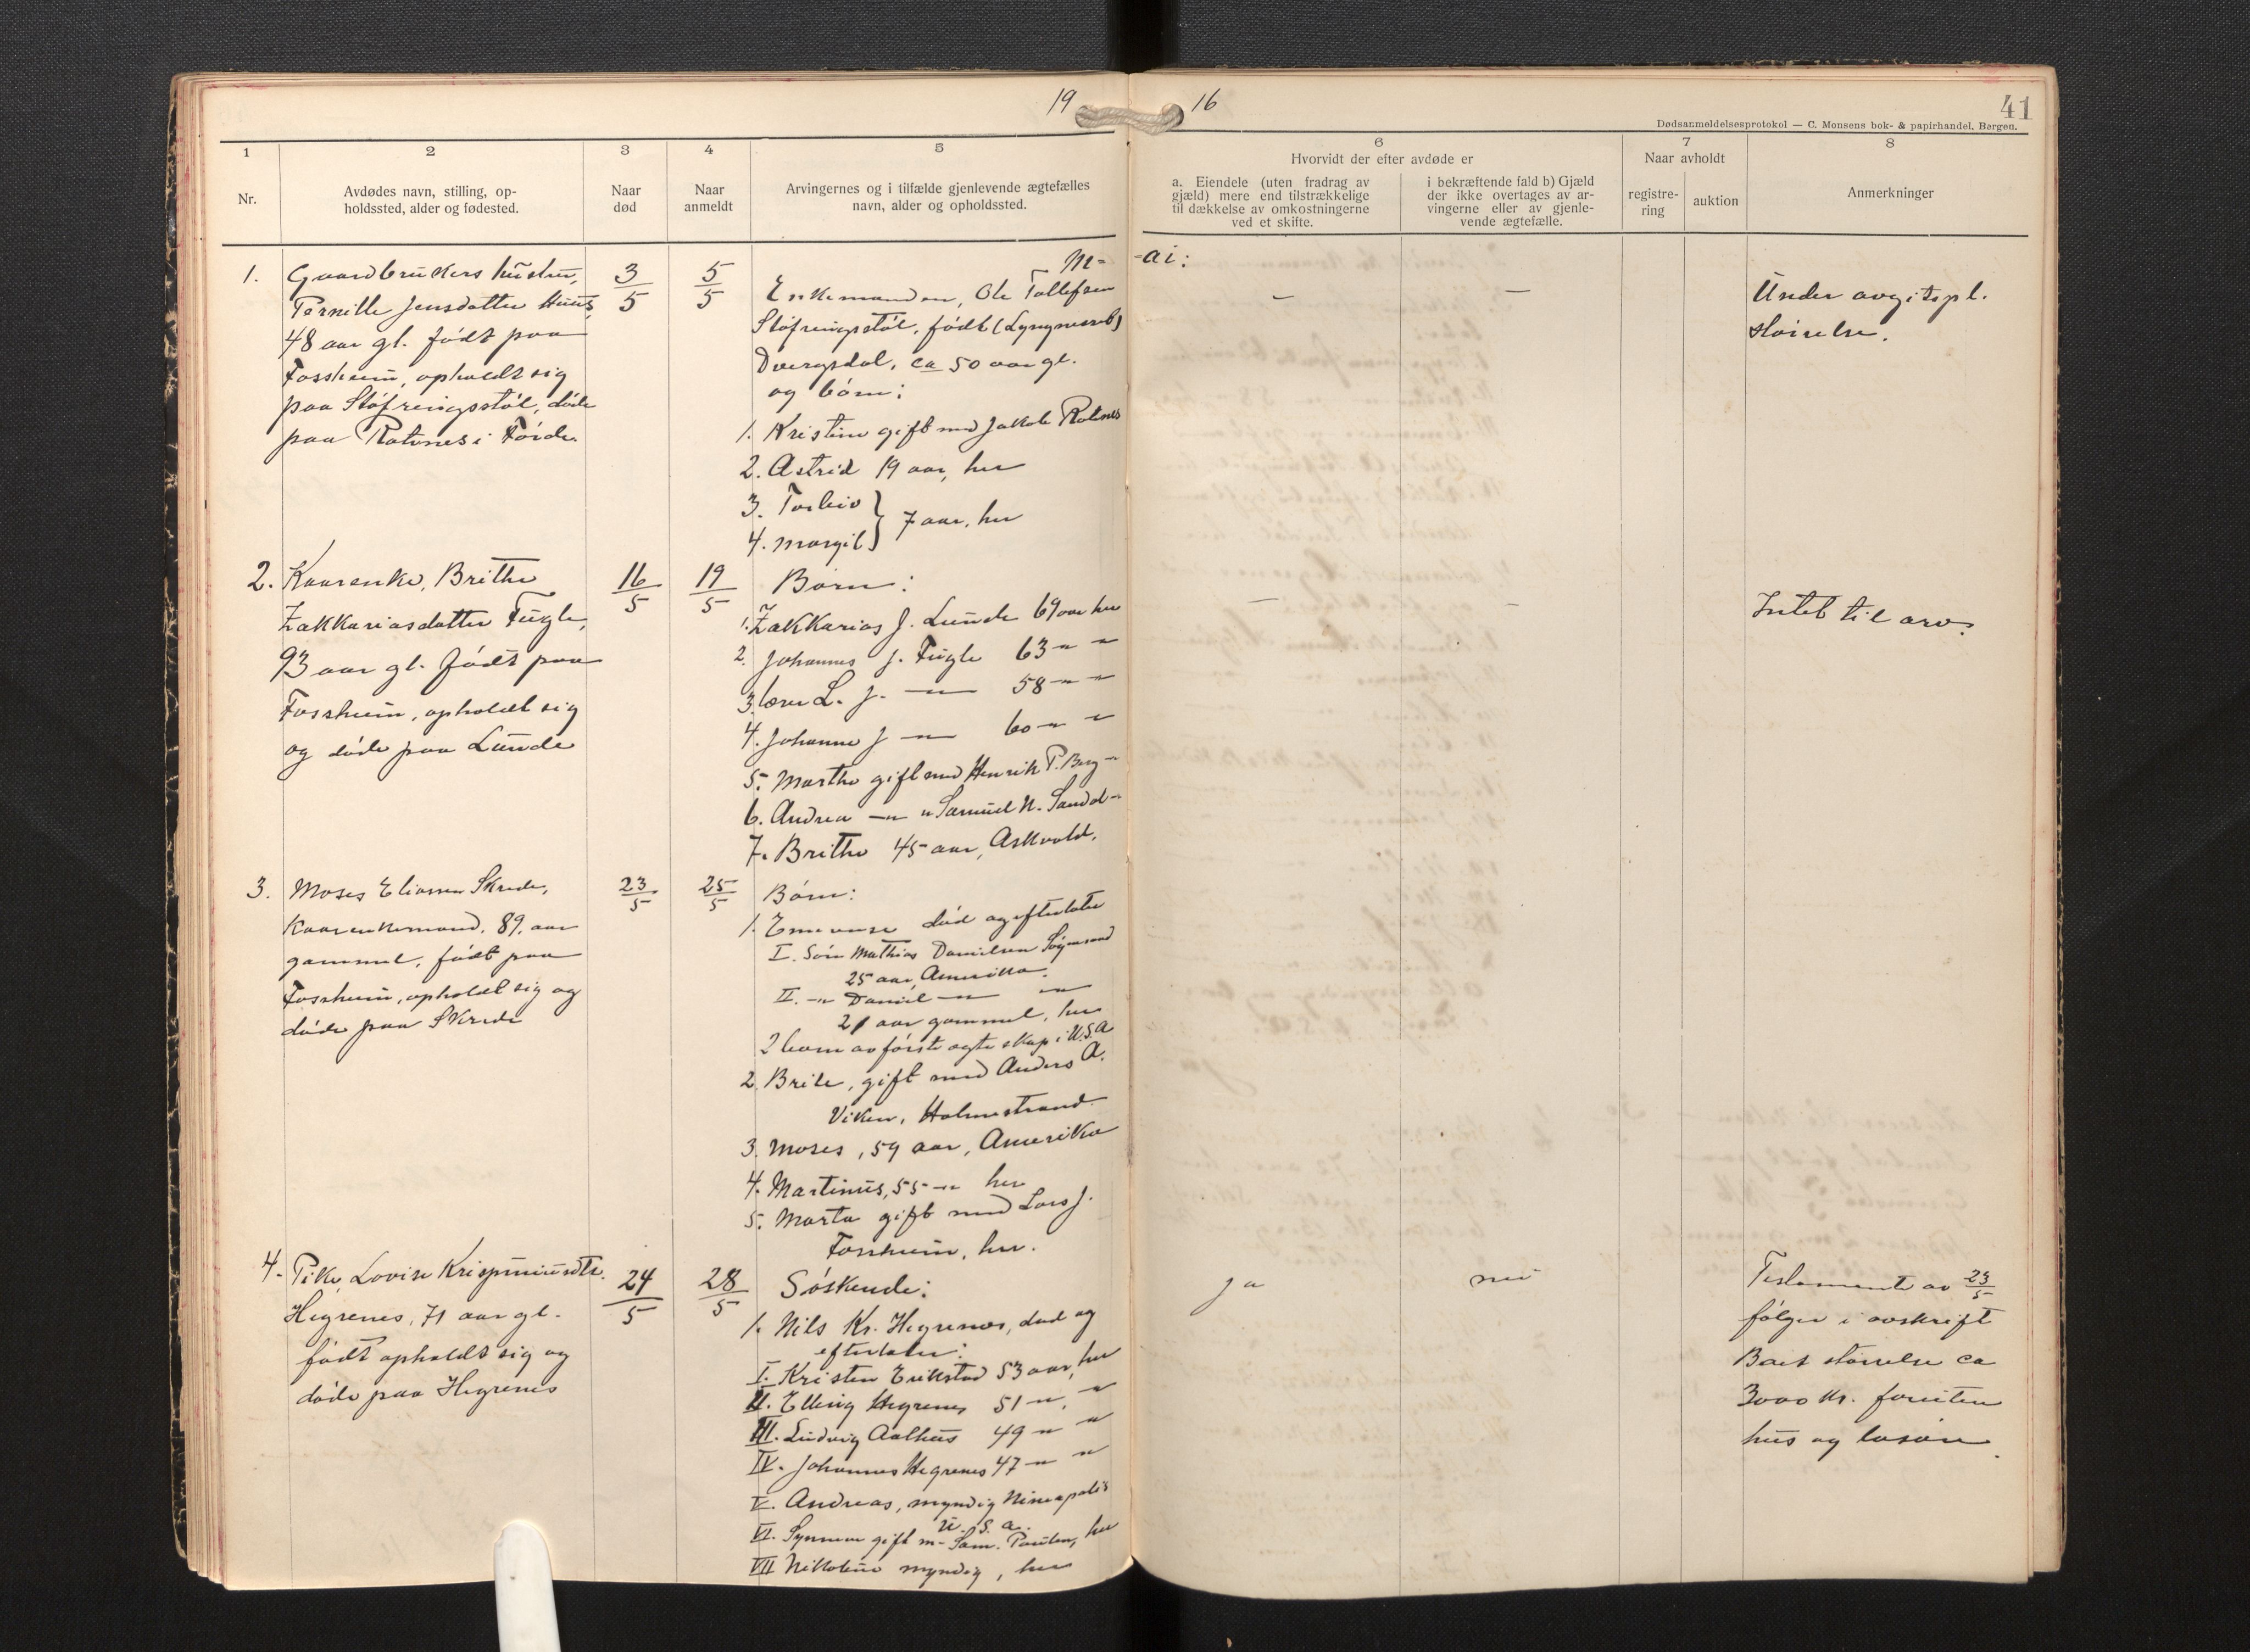 19
16
41
Dødsanmeldelsesprotokol — C. Monsens bok- & papirhandel, Bergen.
1
Nr.
2
Avdødes navn, stilling, op-
holdssted, alder og fødested.
3
Naar
død
4
Naar
anmeldt
5
Arvingernes og i tilfælde gjenlevende ægtefælles
navn, alder og opholdssted.
6
Hvorvidt der efter avdøde er
a. Eiendele (uten fradrag av
gjæld) mere end tilstrækkelige
til dækkelse av omkostningerne
ved et skifte.
i bekræftende fald b) Gjæld
der ikke overtages av ar-
vingerne eller av gjenle-
vende ægtefælle.
7
Naar avholdt
registre-
ring
auktion
8
Anmerkninger
M- -ai:
1. Gaardbrukers hustru,
Pernille Jensdatter Huus,
48 aar gl. født paa
Fossheim, opholdt sig
paa Støfringsstøl, døde
paa Rotenes i Førde.
3/5
5/5
Enkemanden, Ole Tollefsen
Støfringsstøl, født
Dvergsdal, ca 50 aar gl.
og børn:
1. Kristine gift med Jakob Rotenes
2. Astrid 19 aar, her
3. Torleiv
4. Margit } 7 aar, her
— —
Under avgitspl.
størrelse.
2. Kaarenke, Brithe
Zakkariasdatter Fugle,
93 aar gl. født paa
Fossheim, opholdt sig
og døde paa Lunde
16/5
19/5
Børn:
1. Zakkarias J. Lunde 69 aar her
2. Johannes J. Fugle 63 -"- "
3. L. J. -"- 58 -"- "
4. Johanne J -"- 60 -"- "
5. Marthe gift med Henrik P. Berg -"-
6. Andrea -"- " Samuel N. Sandal -"-
7. Brithe 45 aar, Askvold.
— —
Intet til arv.
3. Moses Eliassen Skrede,
Kaarenkemand, 89 aar
gammel, født paa
Fossheim, opholdt sig og
døde paa Skrede
23/5
25/5
Børn:
1. død og efterlater
I. Søn Mathias Danielsen
25 aar, Amerika.
II. -"- Daniel -"- -"-
21 aar gammel, her
2 barn av første egteskap i U.S.A
2. Brite, gift med Anders A.
Viken, Holmestrand
3. Moses, 59 aar, Amerika
4. Martinus, 55 -"- her
5. Marta gift med Lars J.
Fossheim, her.
4. Pike, Lovise Krispiniusdtr.
Hegrenes, 71 aar gl.
født opholdt sig og
døde paa Hegrenes
24/5
28/5
Søskende:
1. Nils Kr. Hegrenes, død og
efterlater:
I. Kristen Erikstad 53 aar, her
II. Elling Hegrenes 51 -"- "
III. Ludvig Aalhus 49 -"- "
IV. Johannes Hegrenes 47 -"- "
V. Andreas, myndig Mineapolis
U. S. A.
VI. Synneve gift m- Sam. her
VII Nikoline myndig, her
ja
nei
Testamente av 23/5
følger i avskrift
Boets størrelse ca
3000 kr. foruten
hus og løsøre.